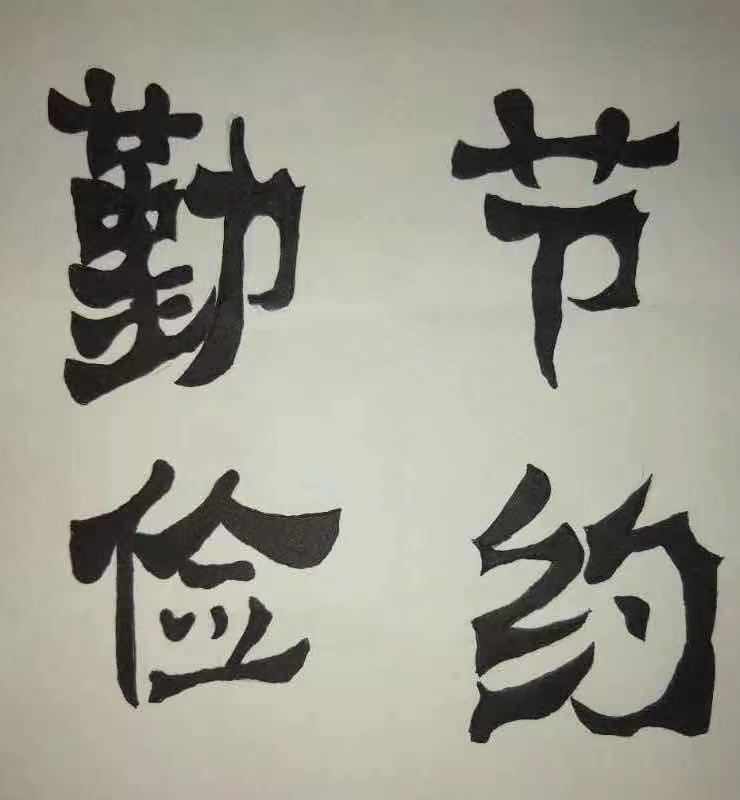 勤俭
节约